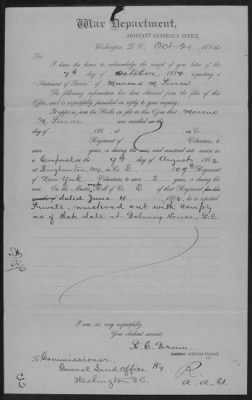 War Department,
ADJUTANT GENERAL'S OFFICE,
Washington, D. C., Oct 21, 188
Sir:
I have the honor to acknowledge the receipt of your letter of the
7th day of October 1884, requesting a
Statement of Service of M.
The following information has been obtained from the files of this
Office, and is respectfully furnished in reply to your inquiry:
It appears from the Rolls on file in this Office that
M. was enrolled on the
day of , 186 , at , in Co.
Regiment of Volunteers, to
serve years, or during the war, and mustered into service as
a Corporal on the 9th day of August, 1862,
at Binghamton, N.Y., in Co. E, 109th Regiment
of New York Volunteers, to serve 3 years, or during the
war. On the Muster Roll of Co. E of that Regiment
dated June 4, 1865, he is reported
Private, mustered out with company
as of that date at Delaney House, D.C.
I am, sir, very respectfully,
Your obedient servant,
R. C. Drum
Adjutant General
To Commissioner
General Land Office By
Washington D.C. A.A.G.